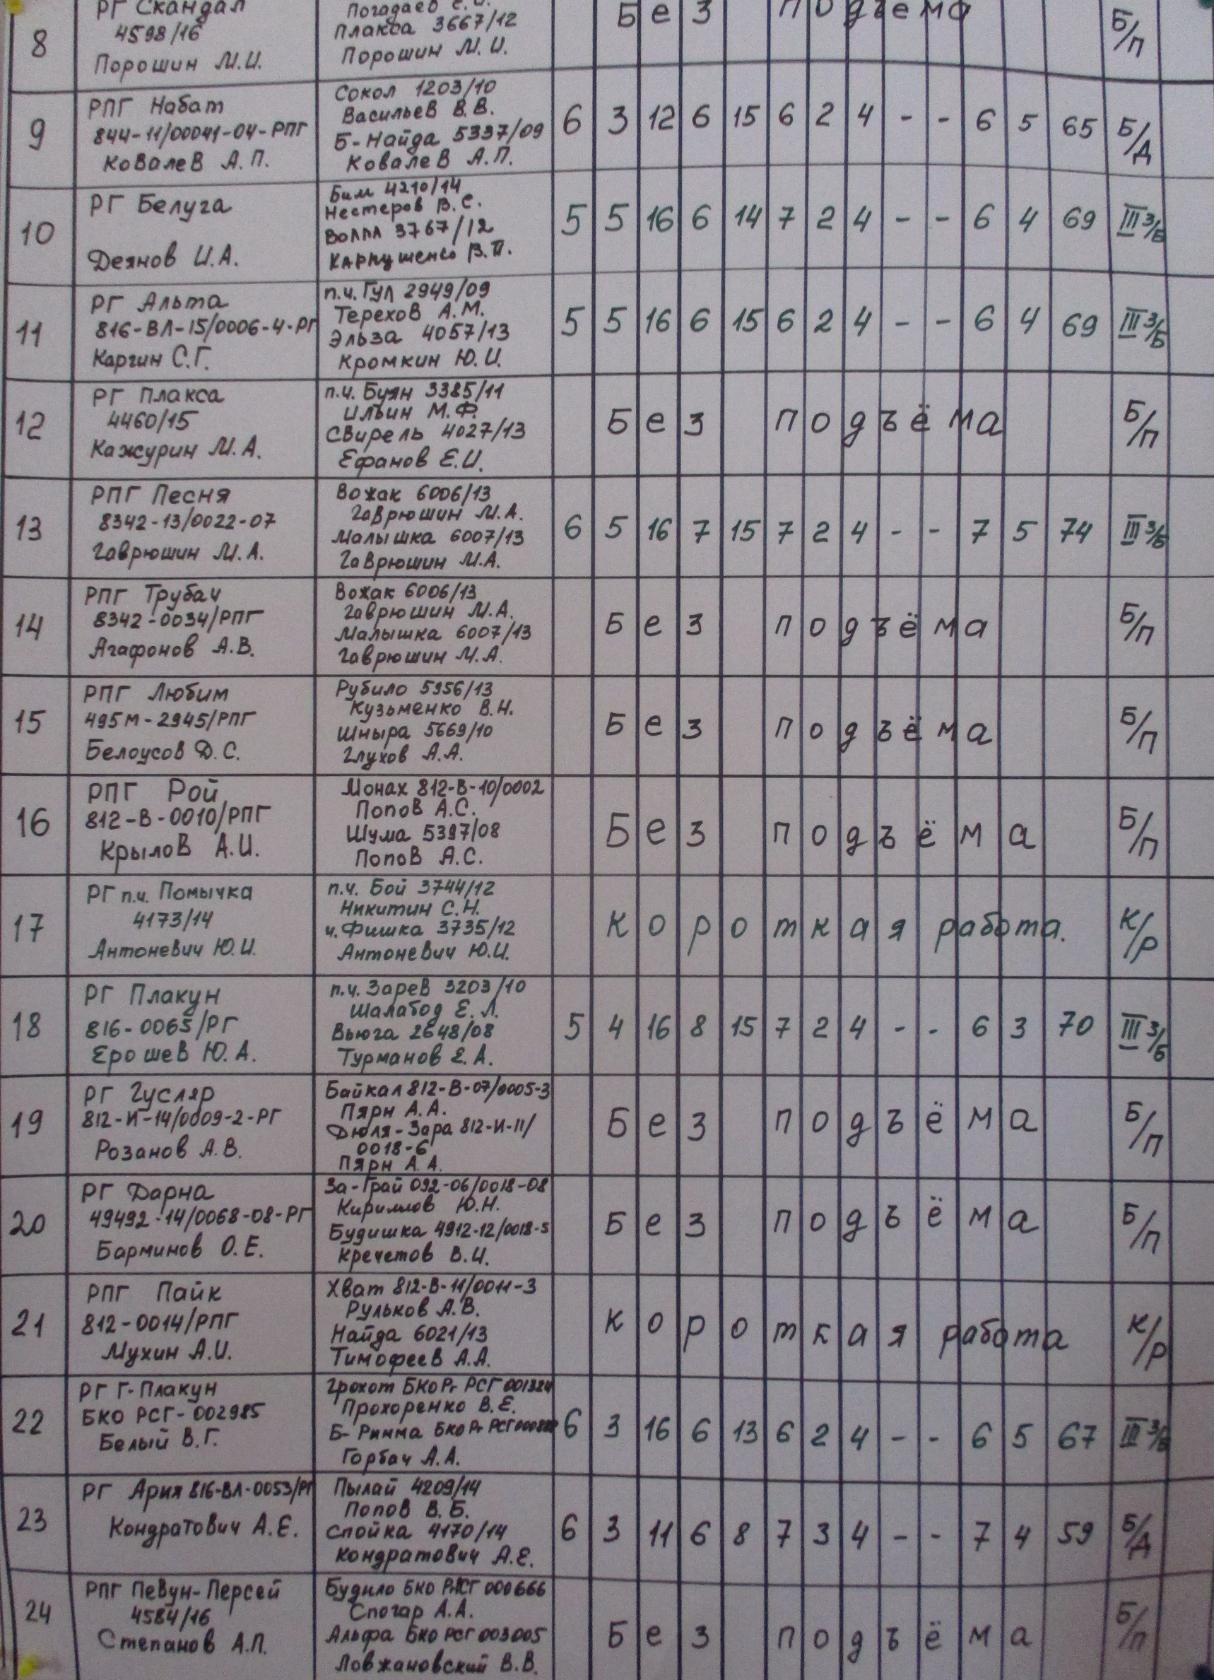 8
РГ Скандал
4598/16
Порошин М.И.
Плакса 3667/12
Порошин М.И.
Без подъема
Б/П
9
РПГ Набат
844-11/00041-04-РПГ
Ковалев А.П.
Сокол 1203/10
Васильев В.В.
Б-Найда 5337/09
Ковалев А.П.
6 3 12 6 15 6 2 4 - - 6 5 65 Б/Д
10
РГ Белуга
Деянов И.А.
Бим 4210/14
Нестеров В.С.
Волга 3767/12
Карпушенко В.П.
5 5 16 6 14 7 2 4 - - 6 4 69 III з/Б
11
РГ Альта
816-ВЛ-15/0006-4-РГ
Каргин С.Г.
п.ч. Гул 2949/09
Терехов А.М.
Эльза 4057/13
Кромкин Ю.И.
5 5 16 6 15 6 2 4 - - 6 4 69 III з/Б
12
РГ Плакса
4460/15
Кажурин М.А.
п.ч. Буян 3385/11
Ильин М.Ф.
Свирель 4027/13
Ефанов Е.И.
Без подъёма
Б/П
13
РПГ Песня
8342-13/0022-07
Гаврюшин М.А.
Вожак 6006/13
Гаврюшин М.А.
Малышка 6007/13
Гаврюшин М.А.
6 5 16 7 15 7 2 4 - - 7 5 74 III з/Б
14
РПГ Трубач
8342-0034/РПГ
Агафонов А.В.
Вожак 6006/13
Гаврюшин М.А.
Малышка 6007/13
Гаврюшин М.А.
Без подъёма
Б/П
15
РПГ Любим
495М-2945/РПГ
Белоусов Д.С.
Рубило 5956/13
Кузьменко В.Н.
Шныра 5669/10
Глухов А.А.
Без подъёма
Б/П
16
РПГ Рой
812-В-0010/РПГ
Крылов А.И.
Монах 812-В-10/0002
Попов А.С.
Шума 5397/08
Попов А.С.
Без подъёма
Б/П
17
РГ п.ч. Помычка
4173/14
Антоневич Ю.И.
п.ч. Бой 3744/12
Никитин С.Н.
ч. Фишка 3735/12
Антоневич Ю.И.
Короткая работа.
К/Р
18
РГ Плакун
816-0065/РГ
Ерошев Ю.А.
п.ч. Зарев 3203/10
Шалабод Е.Л.
Вьюга 2648/08
Турманов Е.А.
5 4 16 8 15 7 2 4 - - 6 3 70 III з/Б
19
РГ Гусляр
812-И-14/0009-2-РГ
Розанов А.В.
Байкал 812-В-07/0005-3
Пярн А.А.
Дюля-Зара 812-И-11/
0018-6
Пярн А.А.
Без подъёма
Б/П
20
РГ Дарна
49492-14/0068-08-РГ
Барминов О.Е.
За-Грай 092-06/0018-08
Кириллов Ю.Н.
Будишка 4912-12/0018-5
Кречетов В.И.
Без подъёма
Б/П
21
РПГ Пайк
812-0014/РПГ
Мухин А.И.
Хват 812-В-11/0011-3
Рульков А.В.
Найда 6021/13
Тимофеев А.А.
Короткая работа
К/Р
22
РГ Г-Плакун
БКО РСГ-002985
Белый В.Г.
Грохот БКО Рг РСГ 001324
Прохоренко В.Е.
Б-Римма БКО Рг
Горбач А.А.
6 3 16 6 13 6 2 4 - - 6 5 67 III з/Б
23
РГ Ария 816-ВЛ-0053/РГ
Кондратович А.Е.
Пылай 4209/14
Попов В.Б.
Спойка 4170/14
Кондратович А.Е.
6 3 11 6 8 7 3 4 - - 7 4 59 Б/Д
24
РПГ Певун-Персей
4584/16
Степанов А.П.
Будило БКО 000666
Спогар А.А.
Альфа БКО РСГ 003005
Ловжановский В.В.
Без подъёма
Б/П